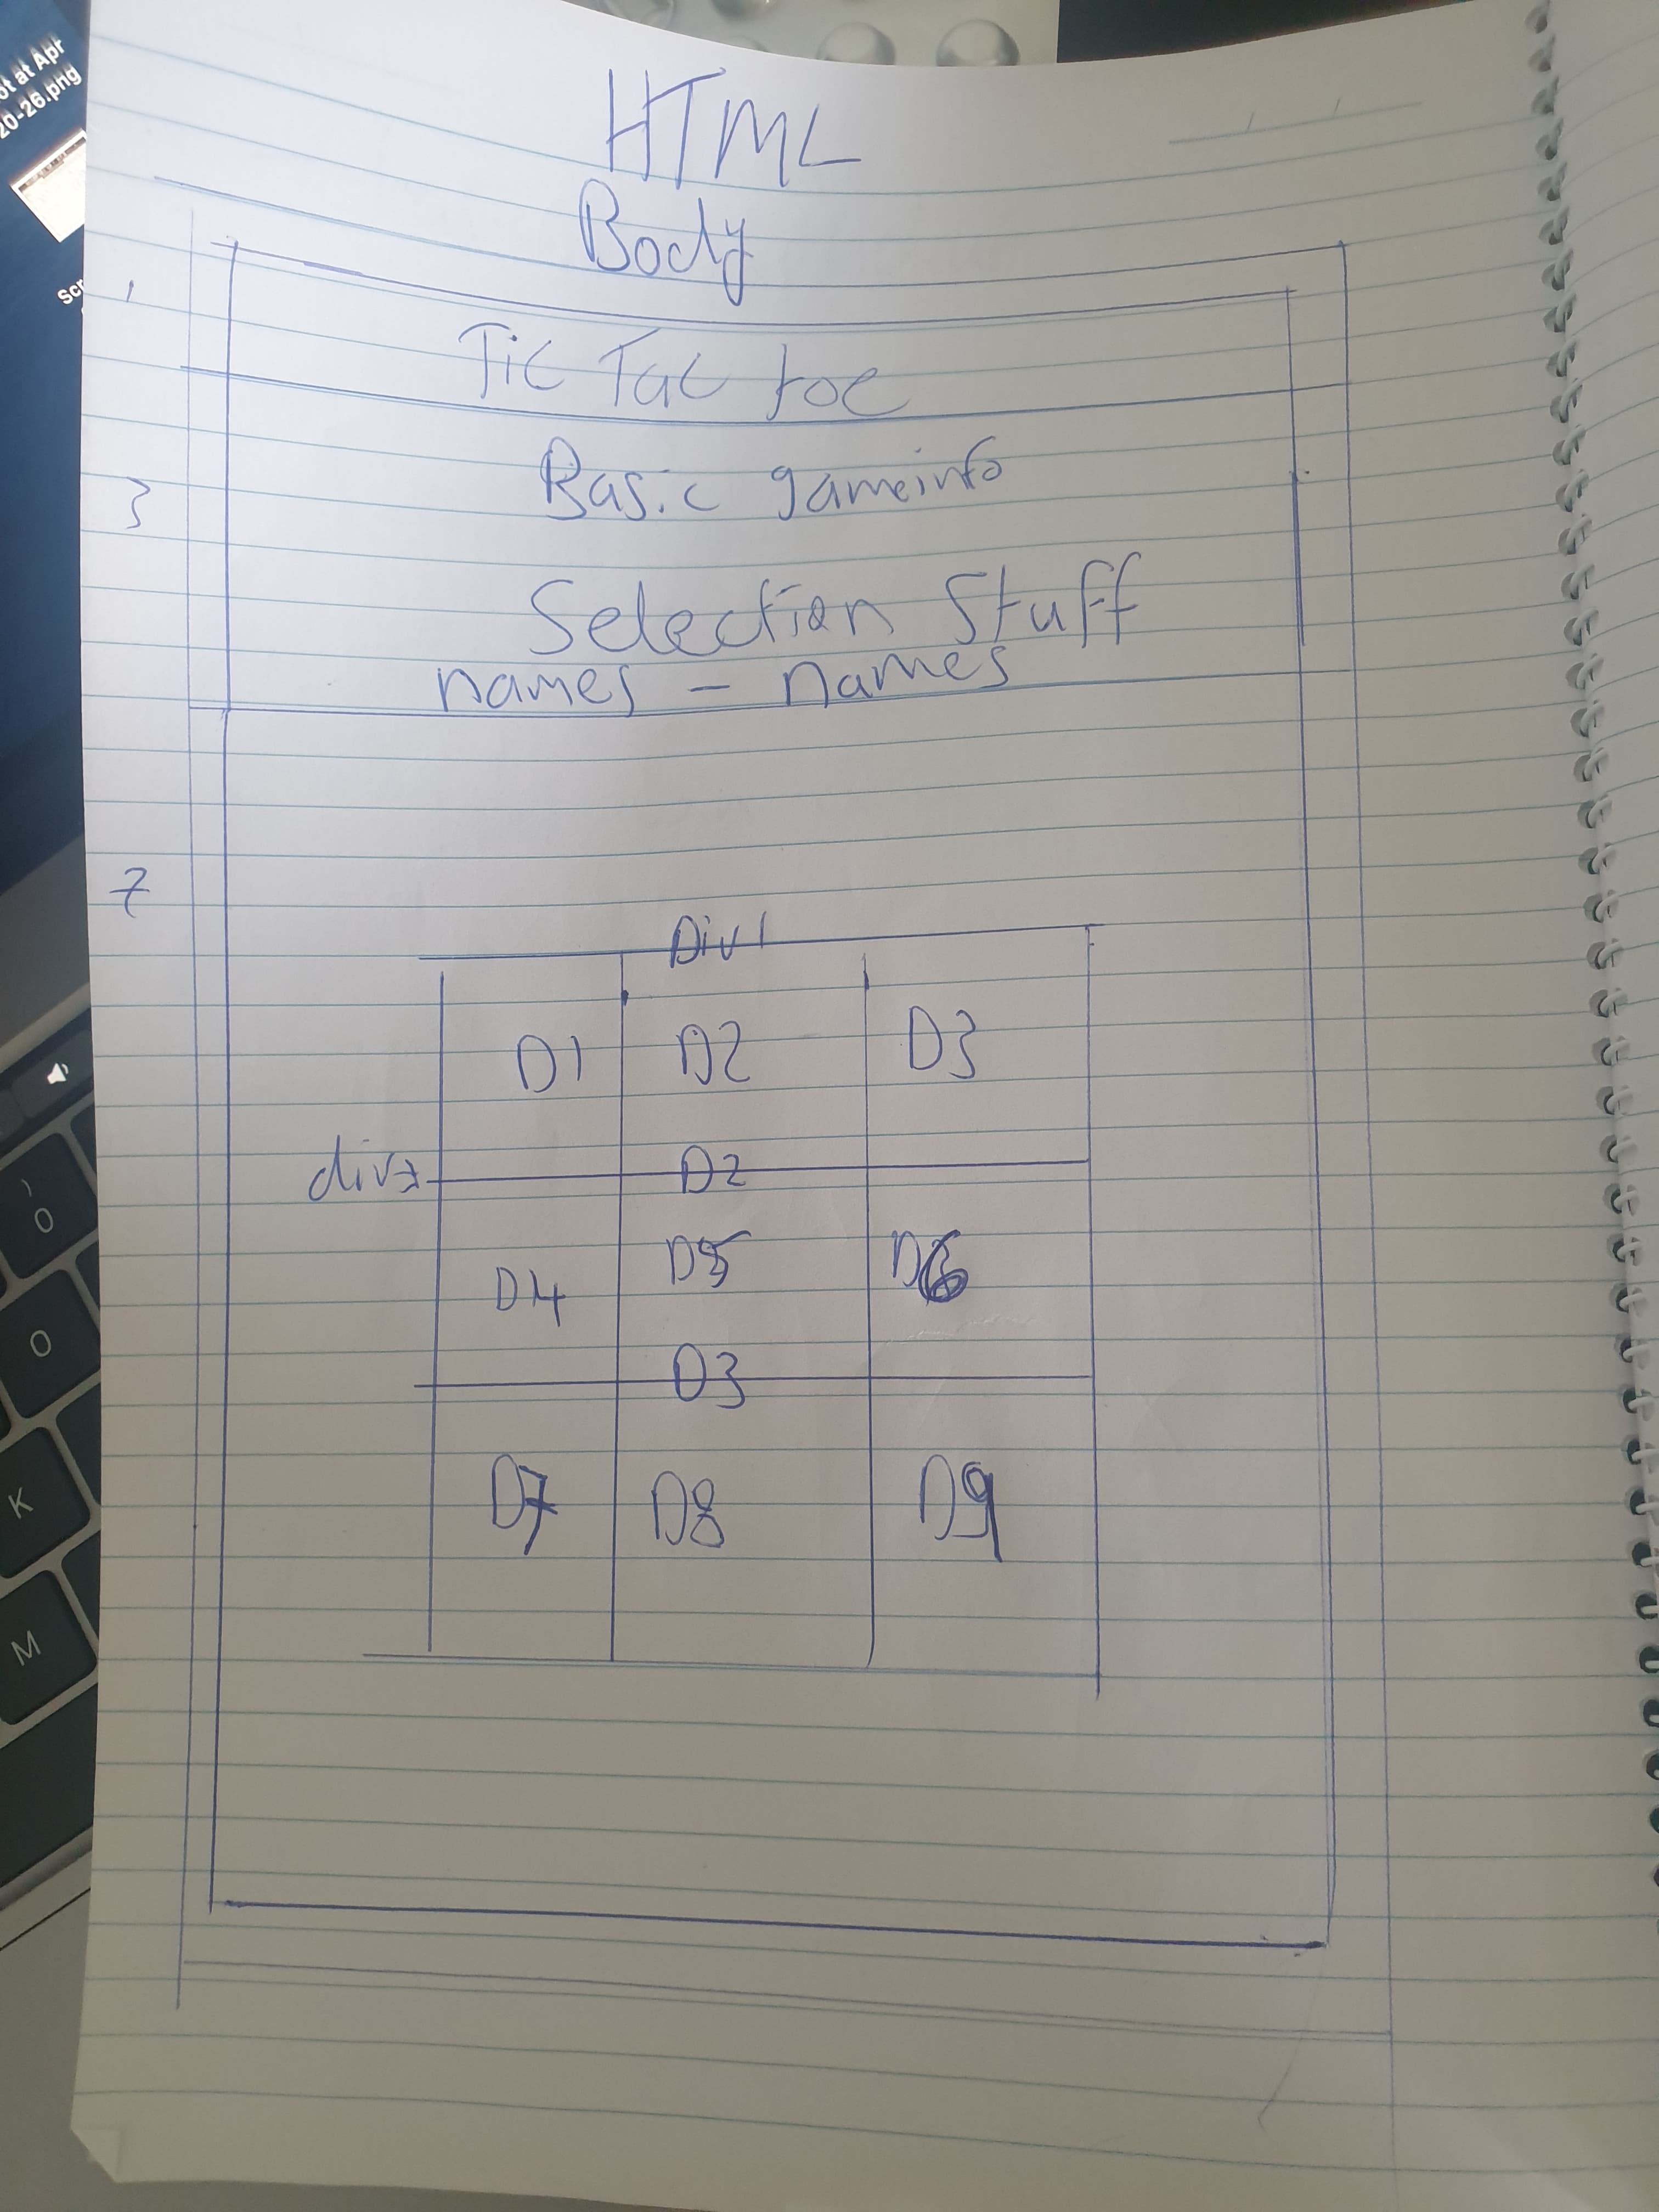 ot at Apr
20-26.png
Scr
HTML
Body
1
Tic Tac toe
3
Basic gameinfo
Selection Stuff
names - names
7
Div 1
D1 D2 D3
div
D2
D4 D5 D6
D3
D7 D8 D9
)
0
O
K
M